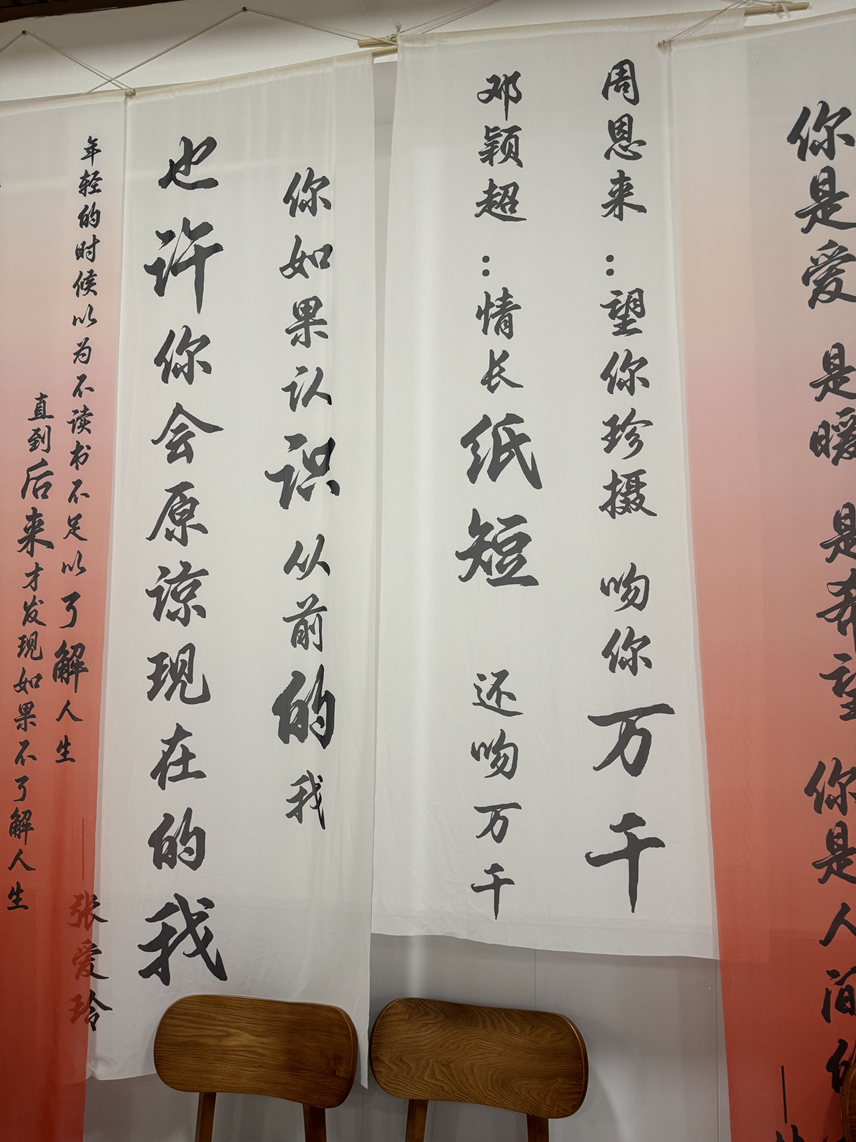 你是爱 是暖 是希望 你是人间的
周恩来：望你珍摄 吻你万千
邓颖超：情长纸短 还吻万千
你如果认识从前的我
也许你会原谅现在的我
年轻的时候以为不读书不足以了解人生
直到后来才发现如果不了解人生
——张爱玲